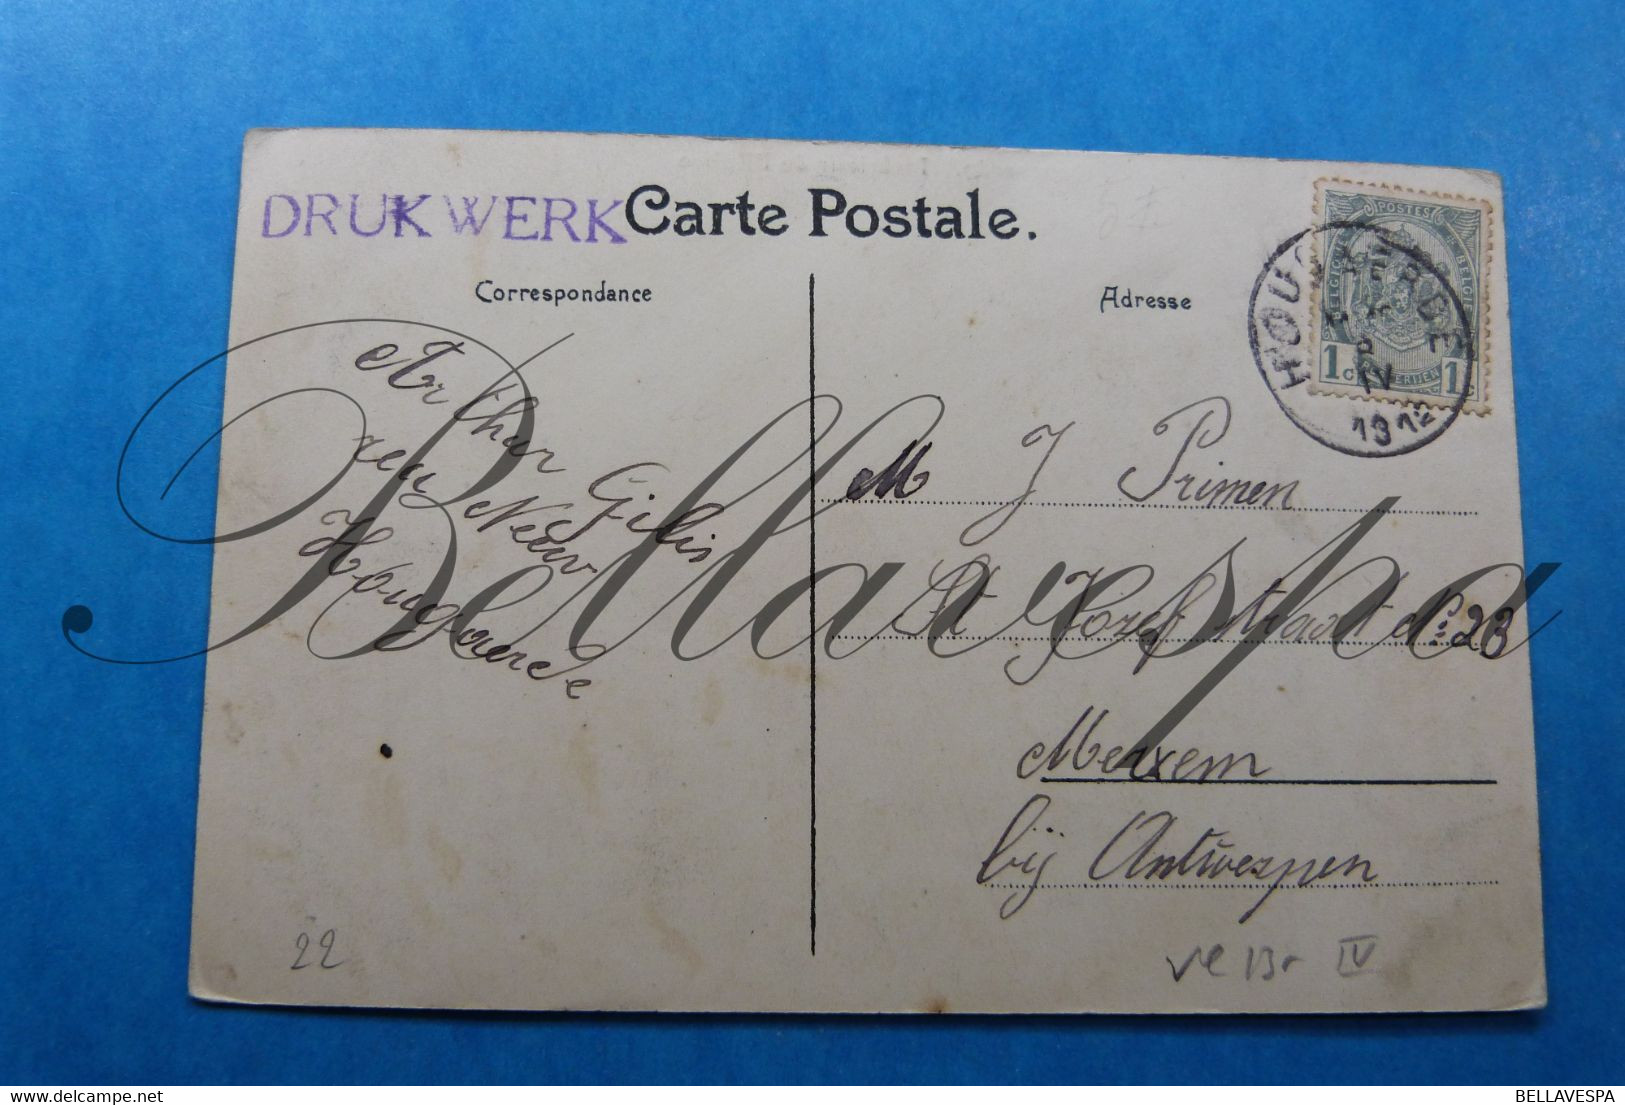 DRUKWERK Carte Postale.
Correspondance
Adresse
POSTES
BELGIQUE BELGIË
1 C 1 C
HOUGAERDE
1912
Arthur Gilis
Neew
Hougaerde
M J Primen
St Jozef straat No: 23
Merxem
bij Antwerpen
22
Bellavespa
BELLAVESPA